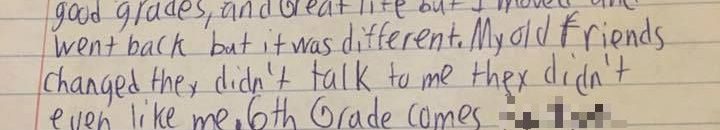 good grades, and Great life but I moved and
went back but it was different. My old friends
changed they didn't talk to me they didn't
even like me. 6th Grade comes